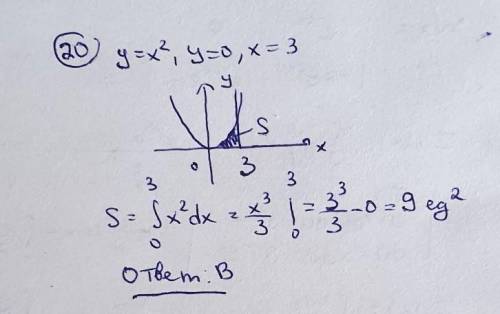 20 y=x², y=0, x=3
y
S
0 3 x
S = ∫₀³ x²dx = x³/3 |₀³ = 3³/3 - 0 = 9 eg²
Ответ: В